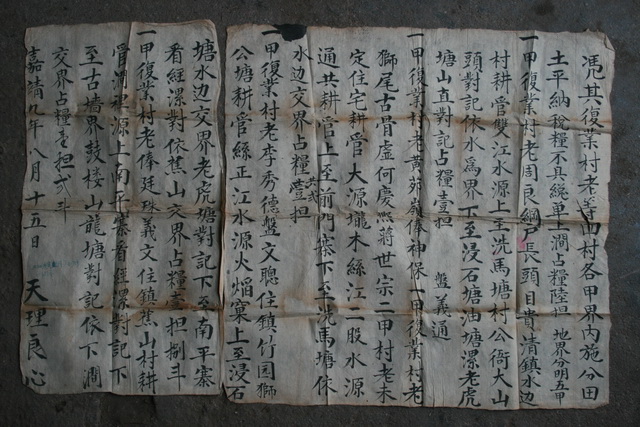 凭其復業村老等四村各甲界內施分田
土平納稅糧不具繞單上澗占糧陸担 地界分明五甲
一甲復業村老周良綱戶長頭目貴清鎮水边
村耕管双江水源上至洗馬塘村公衙大山
頭對記依水為界下至浸石塘油塘漯老虎
塘山直對記占糧壹担 盤義通
一甲復業村老黄苑嶺俸神保一甲復業村老
獅尾古骨虛何慶熙蔣世宗二甲村老未
定住宅耕管大源壠木絲江二股水源
通共耕管上至前门寨下至洗馬塘依
水边交界占糧壹担 共弍
一甲復業村老李秀德盤文聰住鎮竹园獅
公塘耕管絲正江水源火焰窠上至浸石
塘水边交界老虎塘對記下至南平寨
看經漯對依蕉山交界占糧壹担捌斗
一甲復業村老俸廷珠義文住鎮蕉山村耕
管澗 源上南平寨看經漯對記下
至古墻界鼓楼山龍塘對記依下澗
交界占糧壹担弍斗
嘉靖九年八月十五日 天理良心